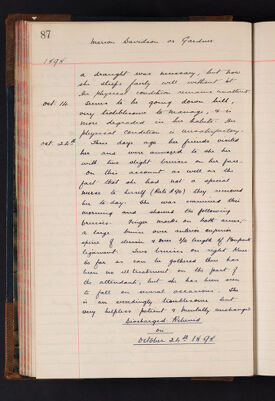 87
Marion Davidson or Gardner
1898
a draught was necessary, but now
she sleeps fairly well without it
her physical condition remains
Oct 14. Seems to be going down hill,
very troublesome to manage, & is
more degraded in her habits. Her
physical condition is unsatisfactory.
Oct. 24th. Three days ago her friends visited
her and were annoyed to see her
with two slight bruises on her face.
On this account as well as the
fact that she had not a special
nurse to herself they removed
her to-day. She was examined this
morning and showed the following
bruises. Finger marks on both arms,
a large bruise over anterior superior
spine of ilium & over length of Poupart
ligament. Two bruises on right knee
So far as can be gathered there has
been no illtreatment on the part of
the attendants, but she has been seen
to fall on several occasions. She
is an exceedingly troublesome but
very helpless patient & mentally unchanged
Discharged Relieved
on
October 24th 1898